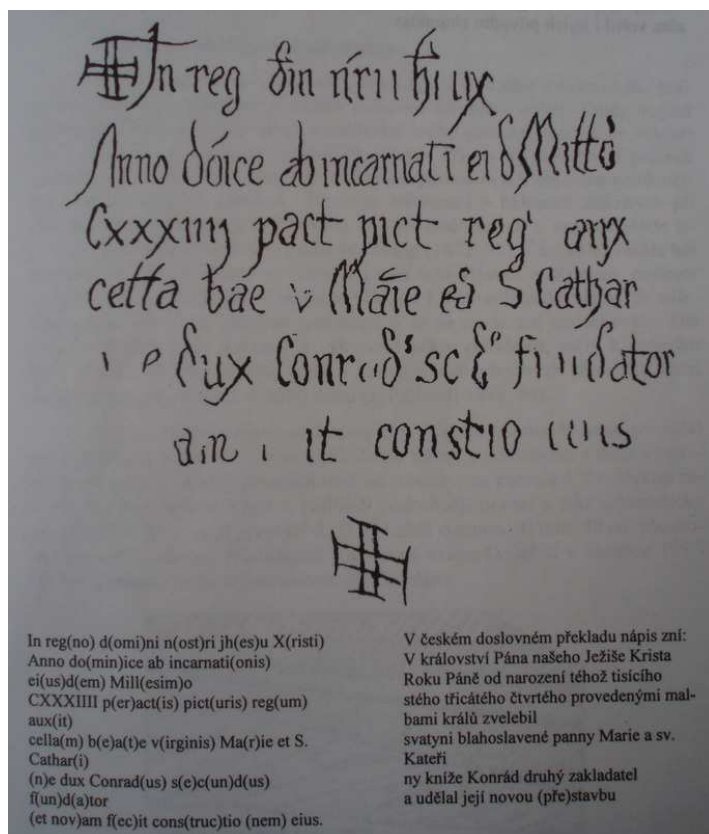 In reg
Anno ab
Cxxxiiij pact pict reg
cella S Cathar
dux
it
In reg(no) d(omi)ni n(ost)ri jh(es)u X(risti)
Anno do(min)ice ab incarnati(onis)
ei(us)d(em) Mill(esim)o
CXXXIIII p(er)act(is) pict(uris) reg(um)
aux(it)
cella(m) b(e)a(t)e v(irginis) Ma(r)ie et S.
Cathar(i)
(n)e dux Conrad(us) s(e)c(un)d(us)
f(un)d(a)tor
(et nov)am f(ec)it cons(truc)tio (nem) eius.
V českém doslovném překladu nápis zní:
V království Pána našeho Ježiše Krista
Roku Páně od narození téhož tisícího
stého třicátého čtvrtého provedenými mal-
bami králů zvelebil
svatyni blahoslavené panny Marie a sv.
Kateři
ny kníže Konrád druhý zakladatel
a udělal její novou (pře)stavbu